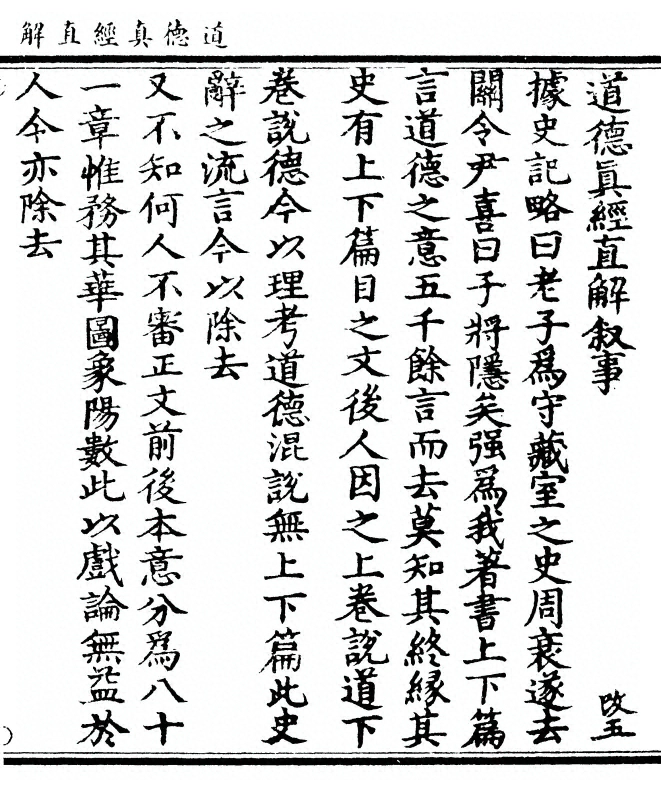 道德真經直解
道德眞經直解叙事 改五
據史記略曰老子爲守藏室之史周衰遂去
關令尹喜曰子將隱矣强爲我著書上下篇
言道德之意五千餘言而去莫知其終緣其
史有上下篇目之文後人因之上卷說道下
卷說德今以理考道德混說無上下篇此史
辭之流言今以除去
又不知何人不審正文前後本意分爲八十
一章惟務其華圖象陽數此以戲論無益於
人今亦除去